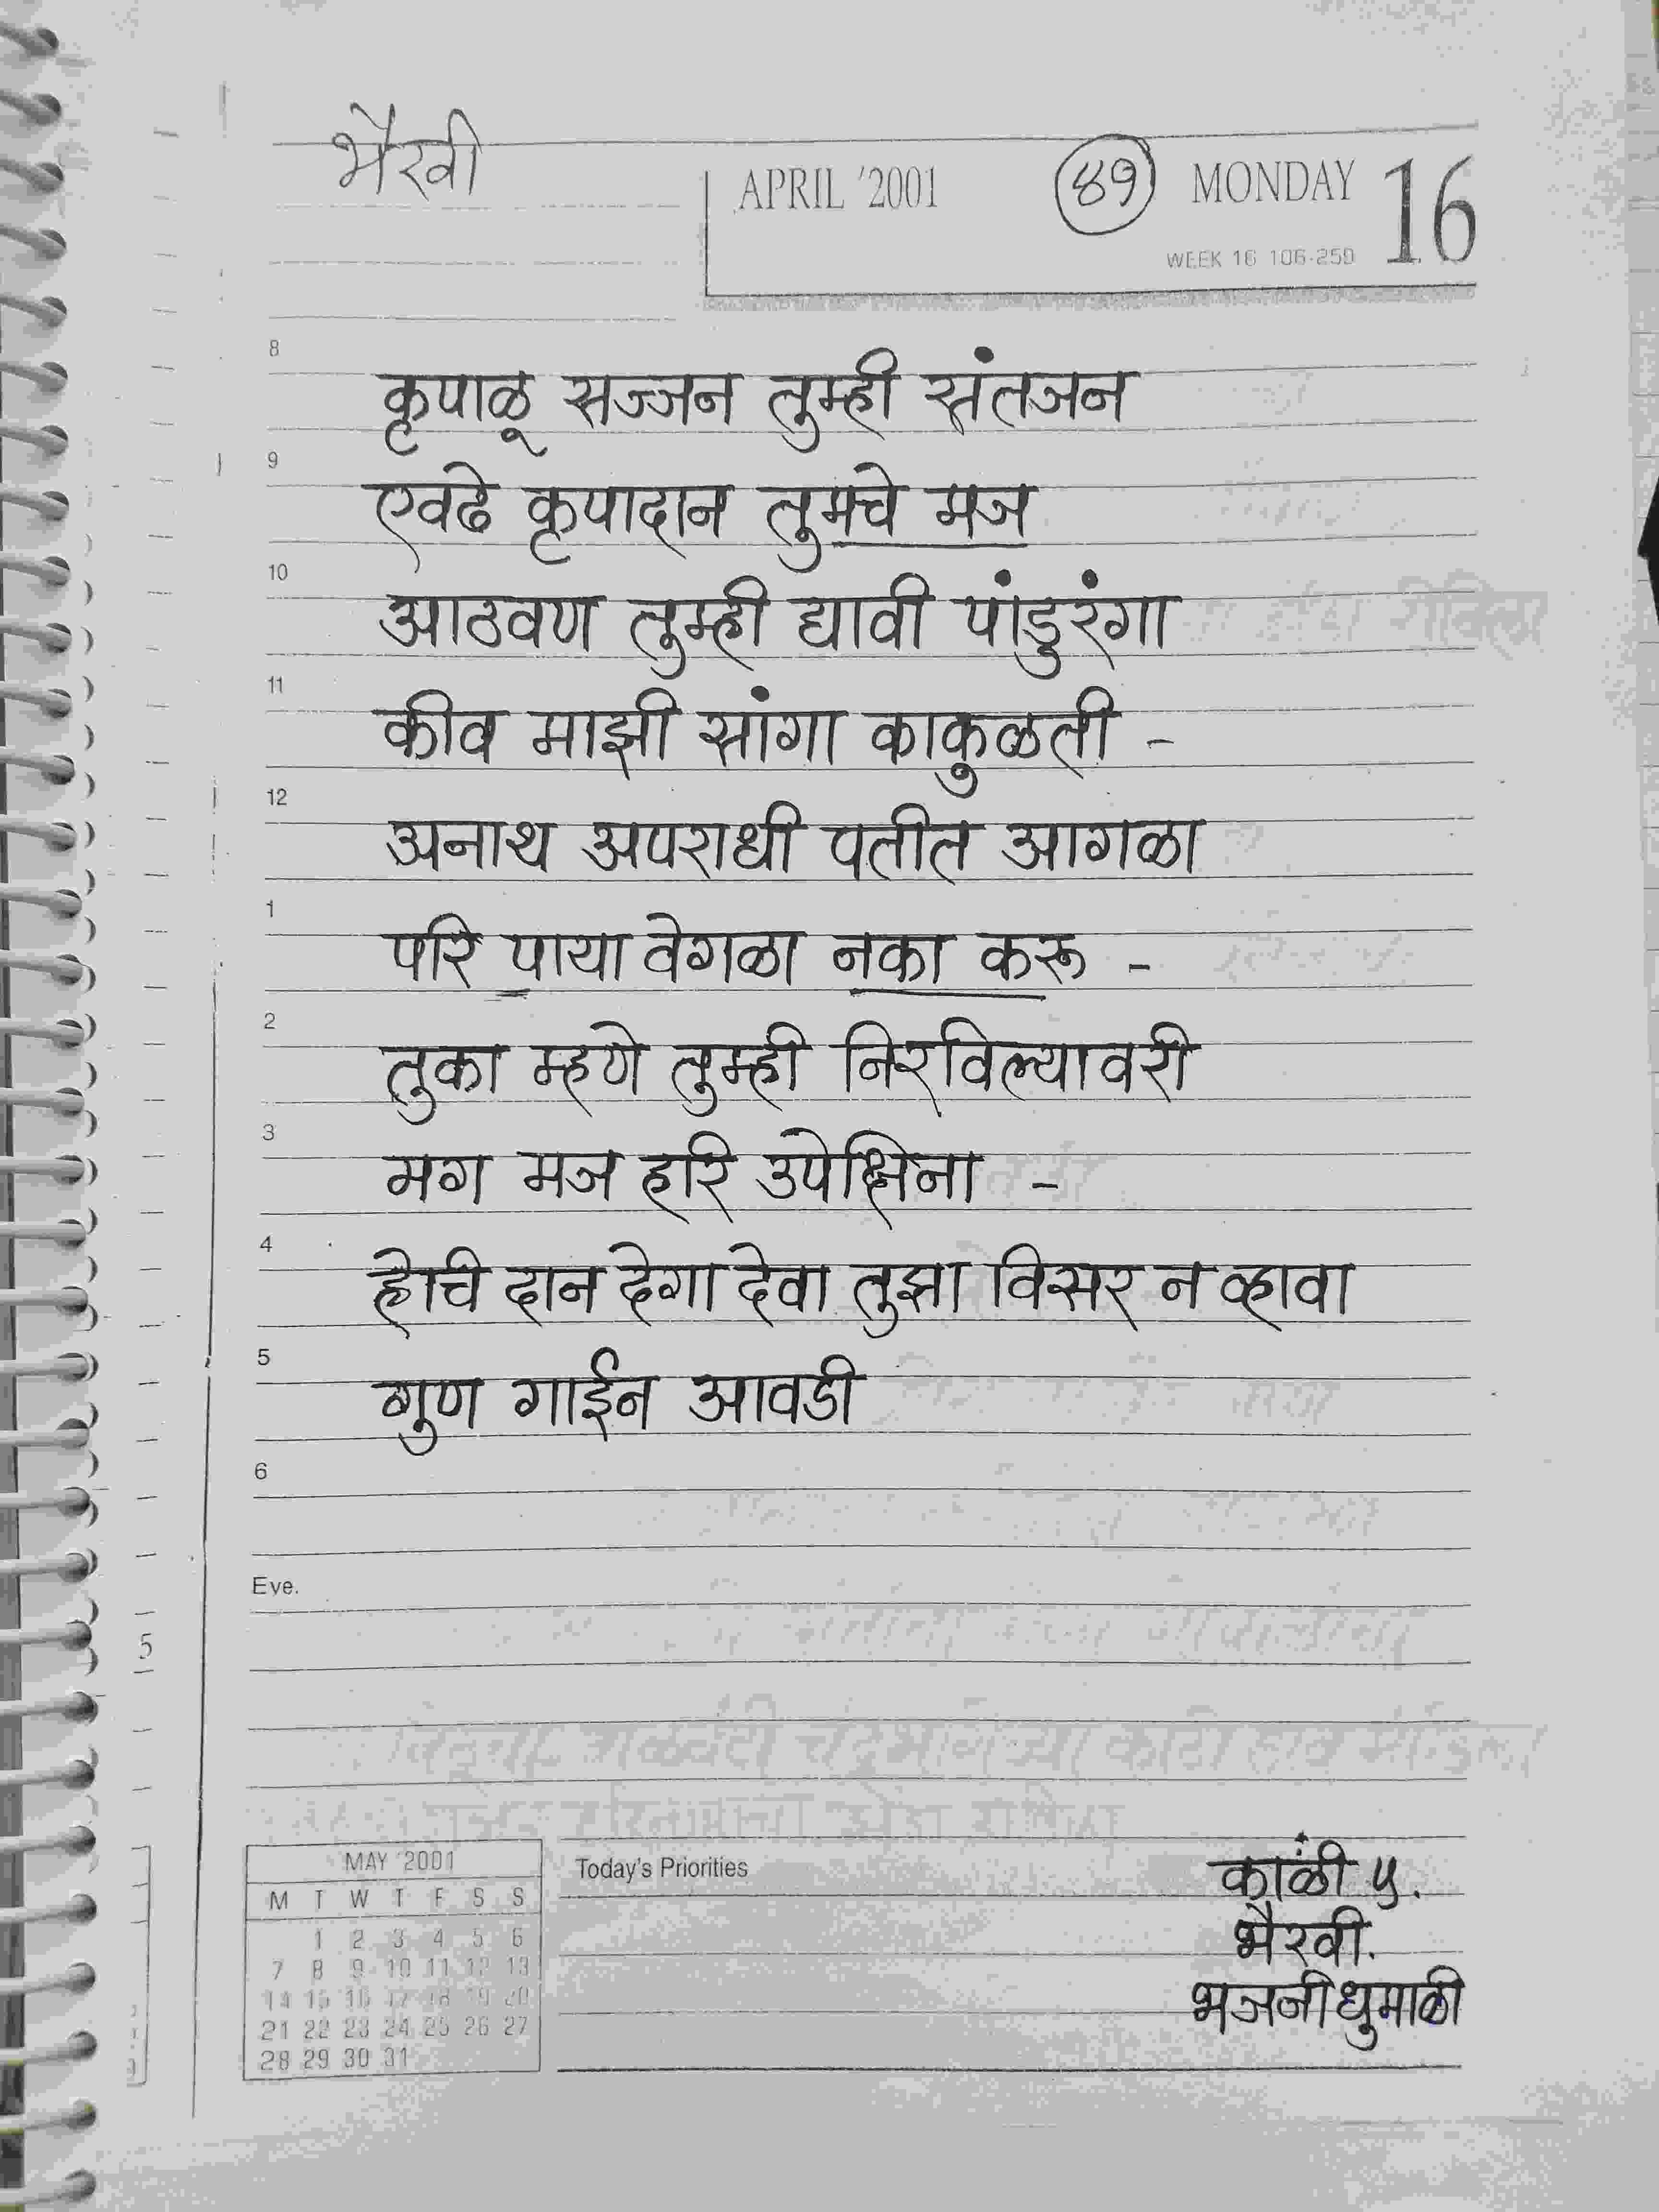 भैरवी
APRIL '2001
४१
MONDAY 16
WEEK 16 106-259
8
कृपाळू सज्जन तुम्ही संतजन
9
एवढे कृपादान तुमचे मज
10
आठवण तुम्ही द्यावी पांडुरंगा
11
कीव माझी सांगा काकुळती -
12
अनाथ अपराधी पतीत आगळा
1
परि पाया वेगळा नका करू -
2
तुका म्हणे तुम्ही निरविल्यावरी
3
मग मज हरि उपेक्षिना -
4
हेचि दान देगा देवा तुझा विसर न व्हावा
5
गुण गाईन आवडी
6
Eve.
5
MAY '2001
M T W T F S S
1 2 3 4 5 6
7 8 9 10 11 12 13
14 15 16 17 18 19 20
21 22 23 24 25 26 27
28 29 30 31
Today's Priorities
काळी ५.
भैरवी.
भजनी धुमाळी